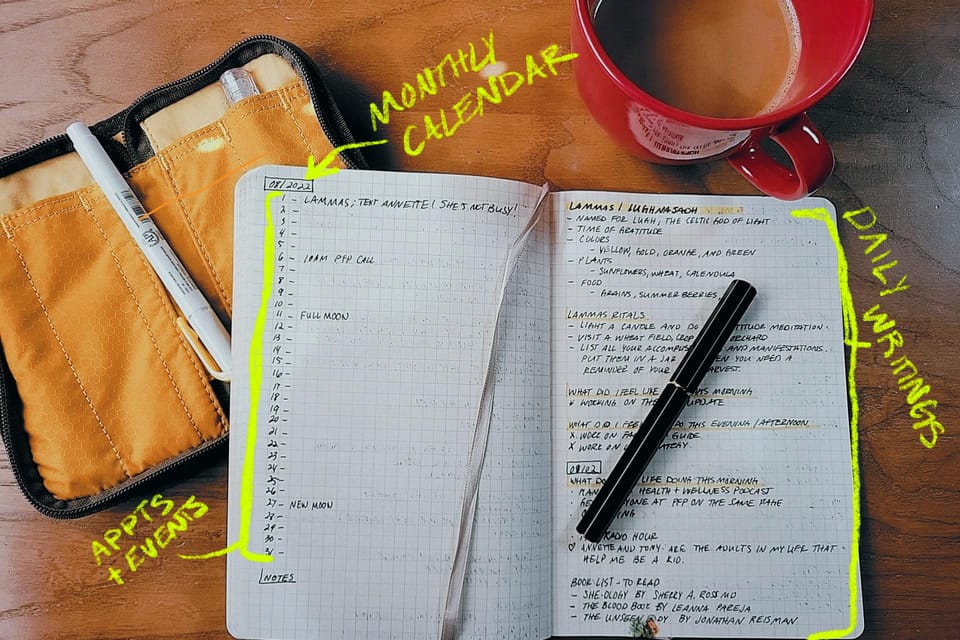 MONTHLY
CALENDAR
08/2022
1 - LAMMAS; TEXT ANNETTE! SHE'S NOT BUSY!
2 -
3 -
4 -
5 -
6 - 10AM PFP CALL
7 -
8 -
9 -
10 -
11 - FULL MOON
12 -
13 -
14 -
15 -
16 -
17 -
18 -
19 -
20 -
21 -
22 -
23 -
24 -
25 -
26 -
27 - NEW MOON
28 -
29 -
30 -
31 -
NOTES
APPTS
+ EVENTS
LAMMAS / LUGHNASADH
- NAMED FOR LUGH, THE CELTIC GOD OF LIGHT
TIME OF GRATITUDE
- COLORS
- YELLOW, GOLD, ORANGE, AND GREEN
- PLANTS
- SUNFLOWERS, WHEAT, CALENDULA
- FOOD
- GRAINS, SUMMER BERRIES,
LAMMAS RITALS
- LIGHT A CANDLE AND DO MEDITATION.
- VISIT A WHEAT FIELD,
- LIST ALL YOUR AND MANIFESTATIONS.
PUT THEM IN A JAR YOU NEED A
REMINDER OF YOUR HARVEST.
WHAT DID I FEEL LIKE THIS MORNING
X WORKING ON THIS UPDATE
WHAT DID I THIS EVENING / AFTERNOON.
X WORK ON GUIDE
X WORK ON
08/02
WHAT LIKE DOING THIS MORNING
- HEALTH + WELLNESS PODCAST
- AT PFP ON THE SAME PAGE
RADIO HOUR
♡ ANNETTE AND TONY ARE THE ADULTS IN MY LIFE THAT
HELP ME BE A KID.
BOOK LIST - TO READ
- SHE-OLOGY BY SHERRY A. ROSS MD
- THE BLOOD BOOK BY LEANNA PAREJA
- THE BY JONATHAN REISMAN
DAILY WRITINGS